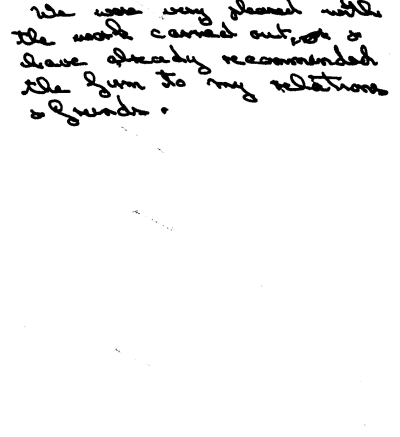 We were very pleased with
the work carried out, &
have already recommended
the firm to my relations
& friends.